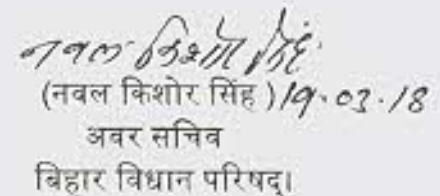 नवल किशोर सिंह
(नवल किशोर सिंह) 19.03.18
अवर सचिव
बिहार विधान परिषद्।